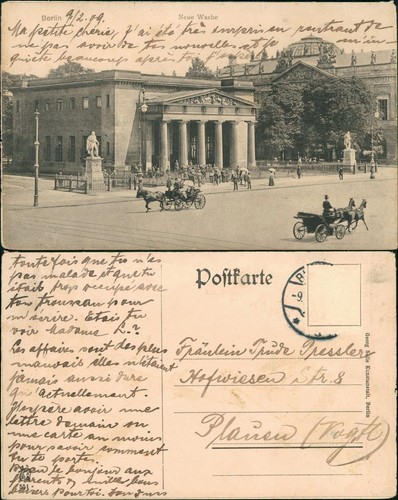 Berlin 9/2.09. Neue Wache
Ma petite chérie, j'ai été très surprise en rentrant de
ne pas avoir de tes nouvelles et je m'in-
quiète beaucoup après
toute fois que tu n'es
pas malade et que tu
étais trop occupée avec
ton trousseau pour
m'écrire. Etais tu
voir Madame L.?
Les affaires sont des plus
mauvais elles n'étaient
jamais aussi dure
qu'actuellement.
J'espère avoir une
lettre demain ou
une carte au moins
pour savoir comment
tu te portes.
le bonjour aux
parents & mille bons
baisers pour toi. Ton
Postkarte
Fräulein Trude Pressler
Hofwiesen Str. 8
Plauen (Vogtl)
Kunstanstalt, Berlin